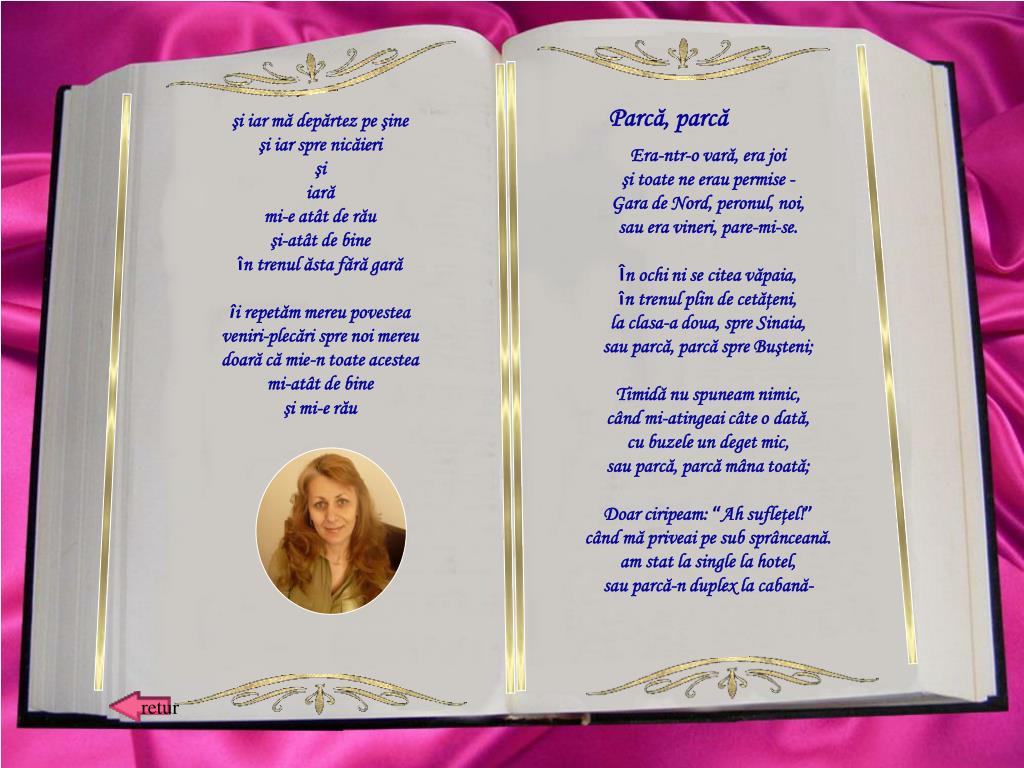 şi iar mă depărtez pe şine
şi iar spre nicăieri
şi
iară
mi-e atât de rău
şi-atât de bine
în trenul ăsta fără gară
îi repetăm mereu povestea
veniri-plecări spre noi mereu
doară că mie-n toate acestea
mi-atât de bine
şi mi-e rău
retur
Parcă, parcă
Era-ntr-o vară, era joi
şi toate ne erau permise -
Gara de Nord, peronul, noi,
sau era vineri, pare-mi-se.
În ochi ni se citea văpaia,
în trenul plin de cetăţeni,
la clasa-a doua, spre Sinaia,
sau parcă, parcă spre Buşteni;
Timidă nu spuneam nimic,
când mi-atingeai câte o dată,
cu buzele un deget mic,
sau parcă, parcă mâna toată;
Doar ciripeam: “ Ah sufleţel!”
când mă priveai pe sub sprânceană.
am stat la single la hotel,
sau parcă-n duplex la cabană-